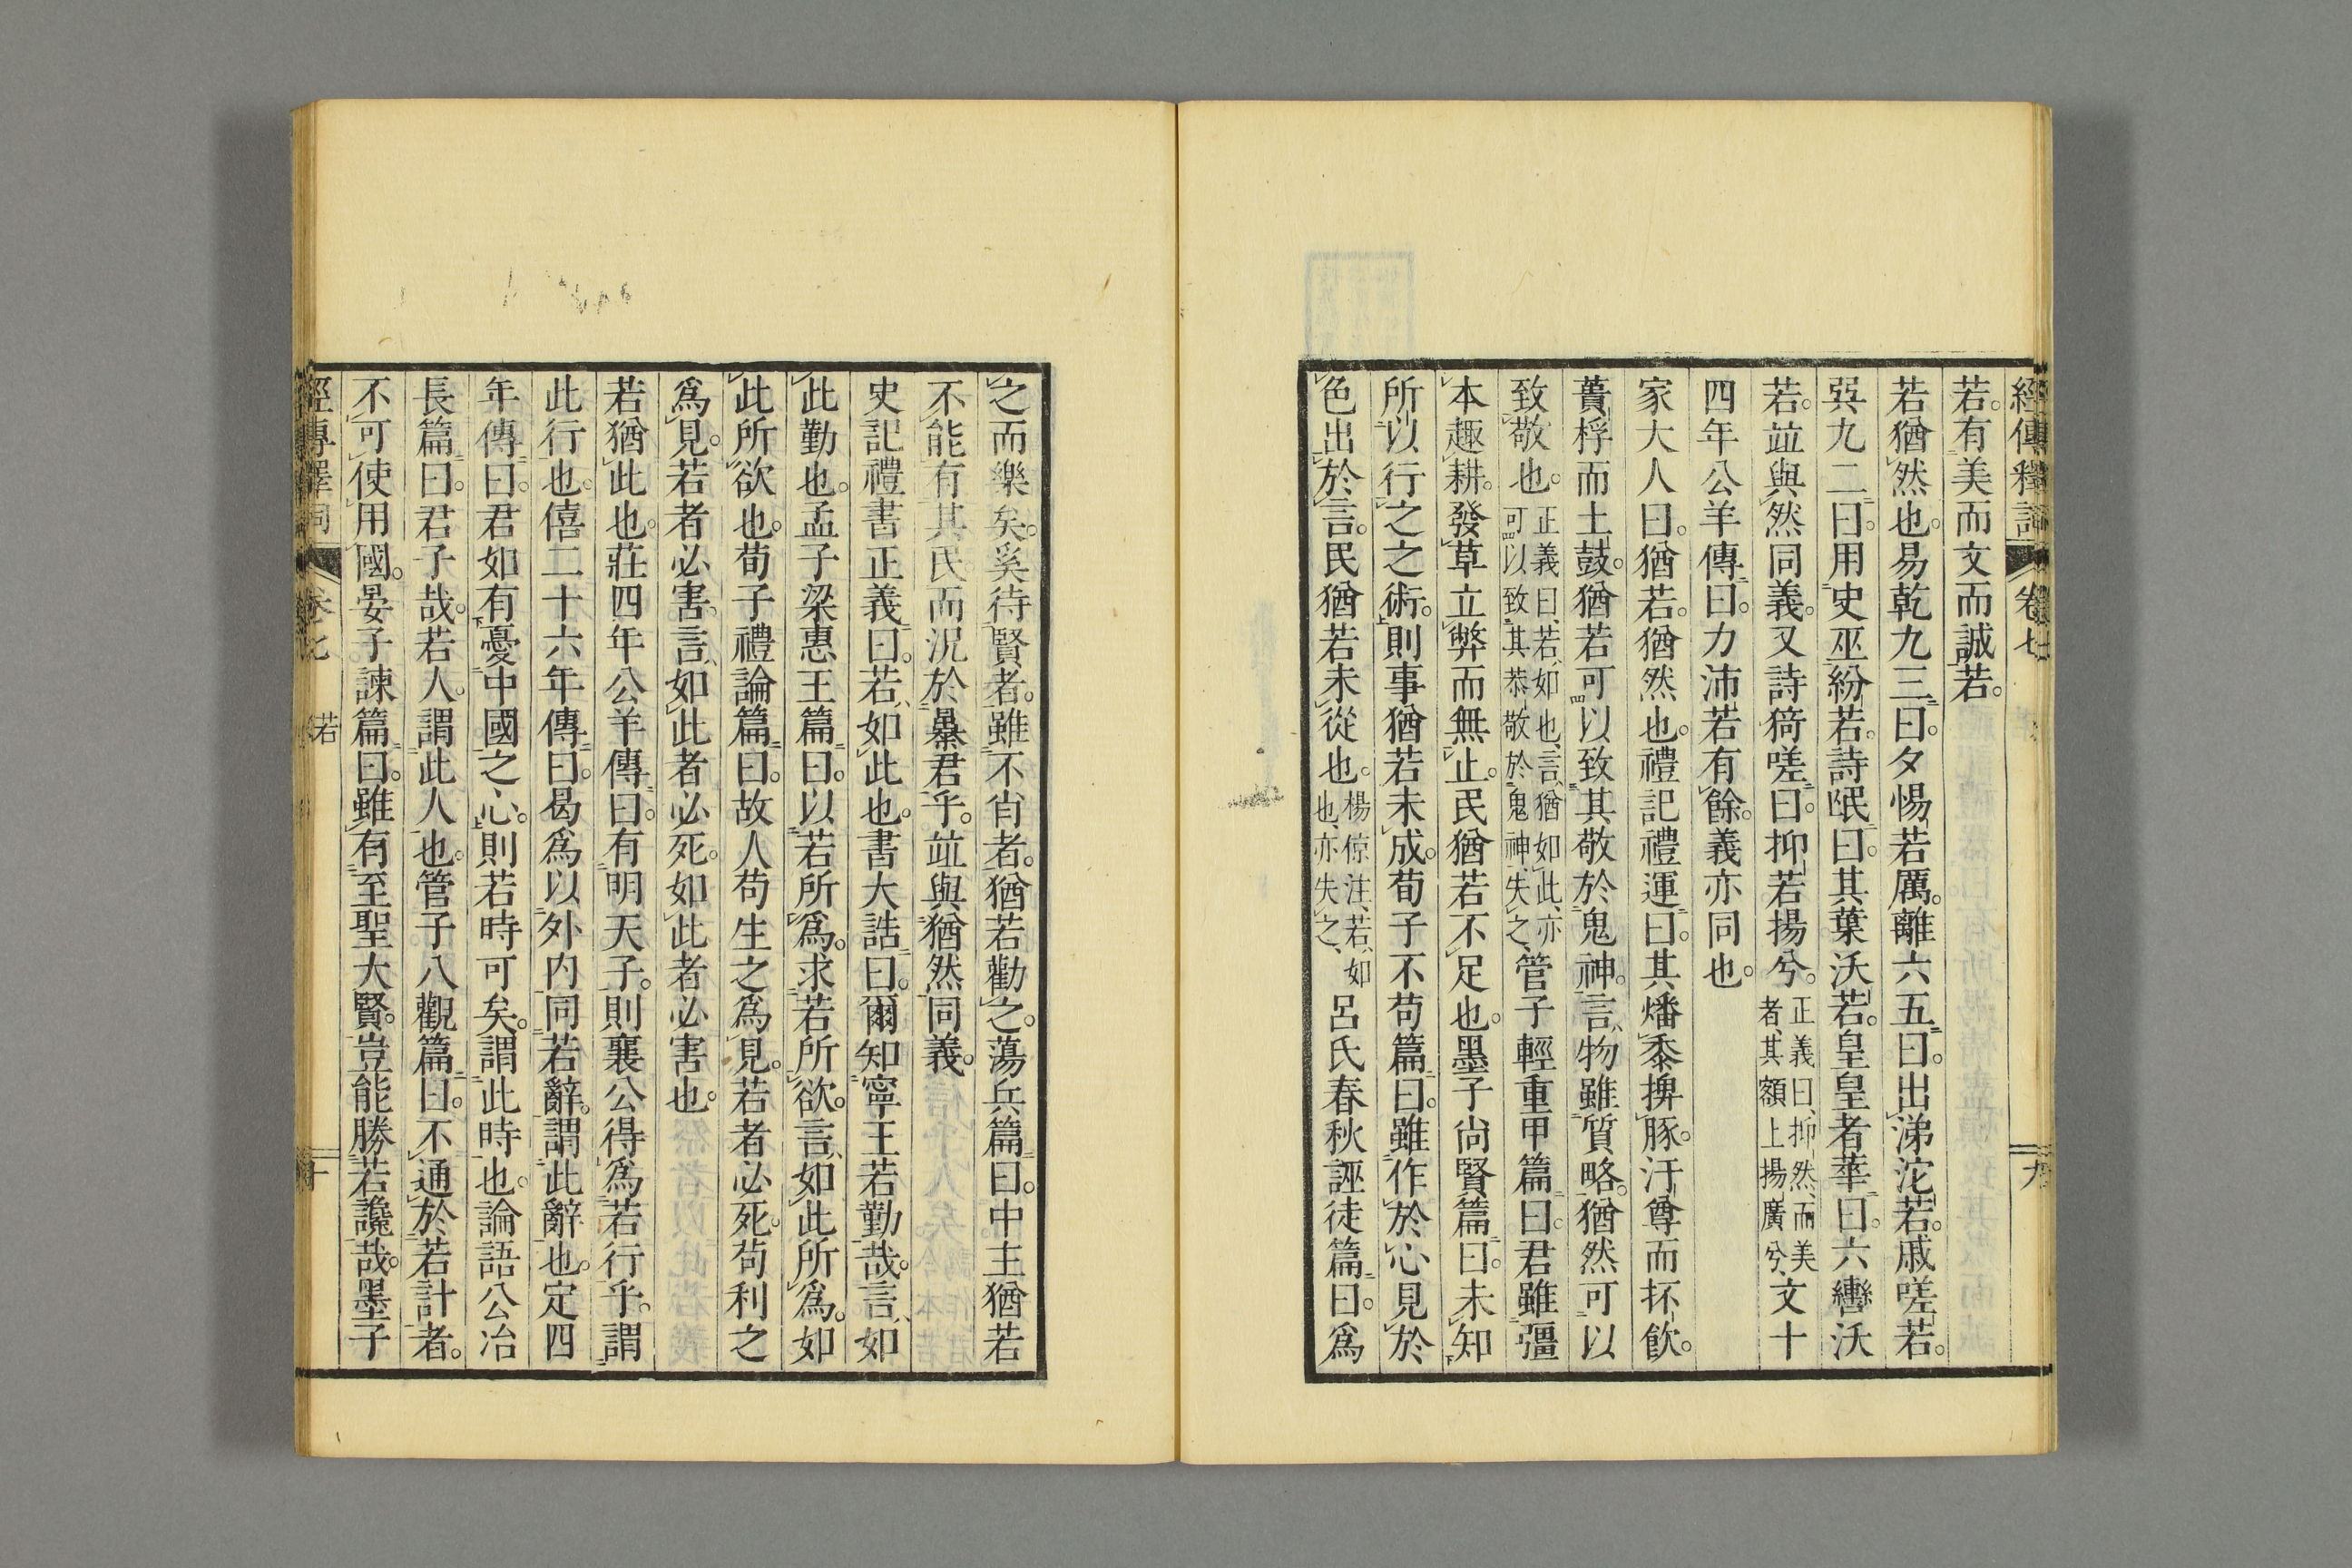 經傳釋詞 卷七 九
若。有美而文而誠若。
若猶然也。易乾九三曰。夕惕若厲。離六五曰。出涕沱若。戚嗟若。
巽九二曰。用史巫紛若。詩氓曰。其葉沃若。皇皇者華曰。六轡沃
若。並與然同義。又詩猗嗟曰。抑若揚兮。正義曰、抑然而美者、其額上揚廣兮、文十
四年公羊傳曰。力沛若有餘。義亦同也。
家大人曰。猶若。猶然也。禮記禮運曰。其燔黍捭豚。汙尊而抔飲。
蕢桴而土鼓。猶若可以致其敬於鬼神。言、物雖質略。猶然可以
致敬也。正義曰、若、如也、言、猶如此、亦可以致其恭敬於鬼神、失之、管子輕重甲篇曰。君雖彊
本趣耕。發草立弊而無止。民猶若不足也。墨子尙賢篇曰。未知
所以行之之術。則事猶若未成。荀子不苟篇曰。雖作於心見於
色出於言。民猶若未從也。楊倞注、若、如也、亦失之、呂氏春秋誣徒篇曰。爲
之而樂矣。奚待賢者。雖不肖者。猶若勸之。蕩兵篇曰。中主猶若
不能有其民而況於暴君乎。並與猶然同義。
史記禮書正義曰。若、如此也。書大誥曰。爾知寧王若勤哉。言、如
此勤也。孟子梁惠王篇曰。以若所爲。求若所欲。言、如此所爲。如
此所欲也。荀子禮論篇曰。故人苟生之爲見。若者必死。苟利之
爲見。若者必害。言、如此者必死。如此者必害也。
若猶此也。莊四年公羊傳曰。有明天子。則襄公得爲若行乎。謂
此行也。僖二十六年傳曰。曷爲以外内同若辭。謂此辭也。定四
年傳曰。君如有憂中國之心。則若時可矣。謂此時也。論語公冶
長篇曰。君子哉。若人。謂此人也。管子八觀篇曰。不通於若計者。
不可使用國。晏子諫篇曰。雖有至聖大賢。豈能勝若讒哉。墨子
經傳釋詞 卷七 若 十